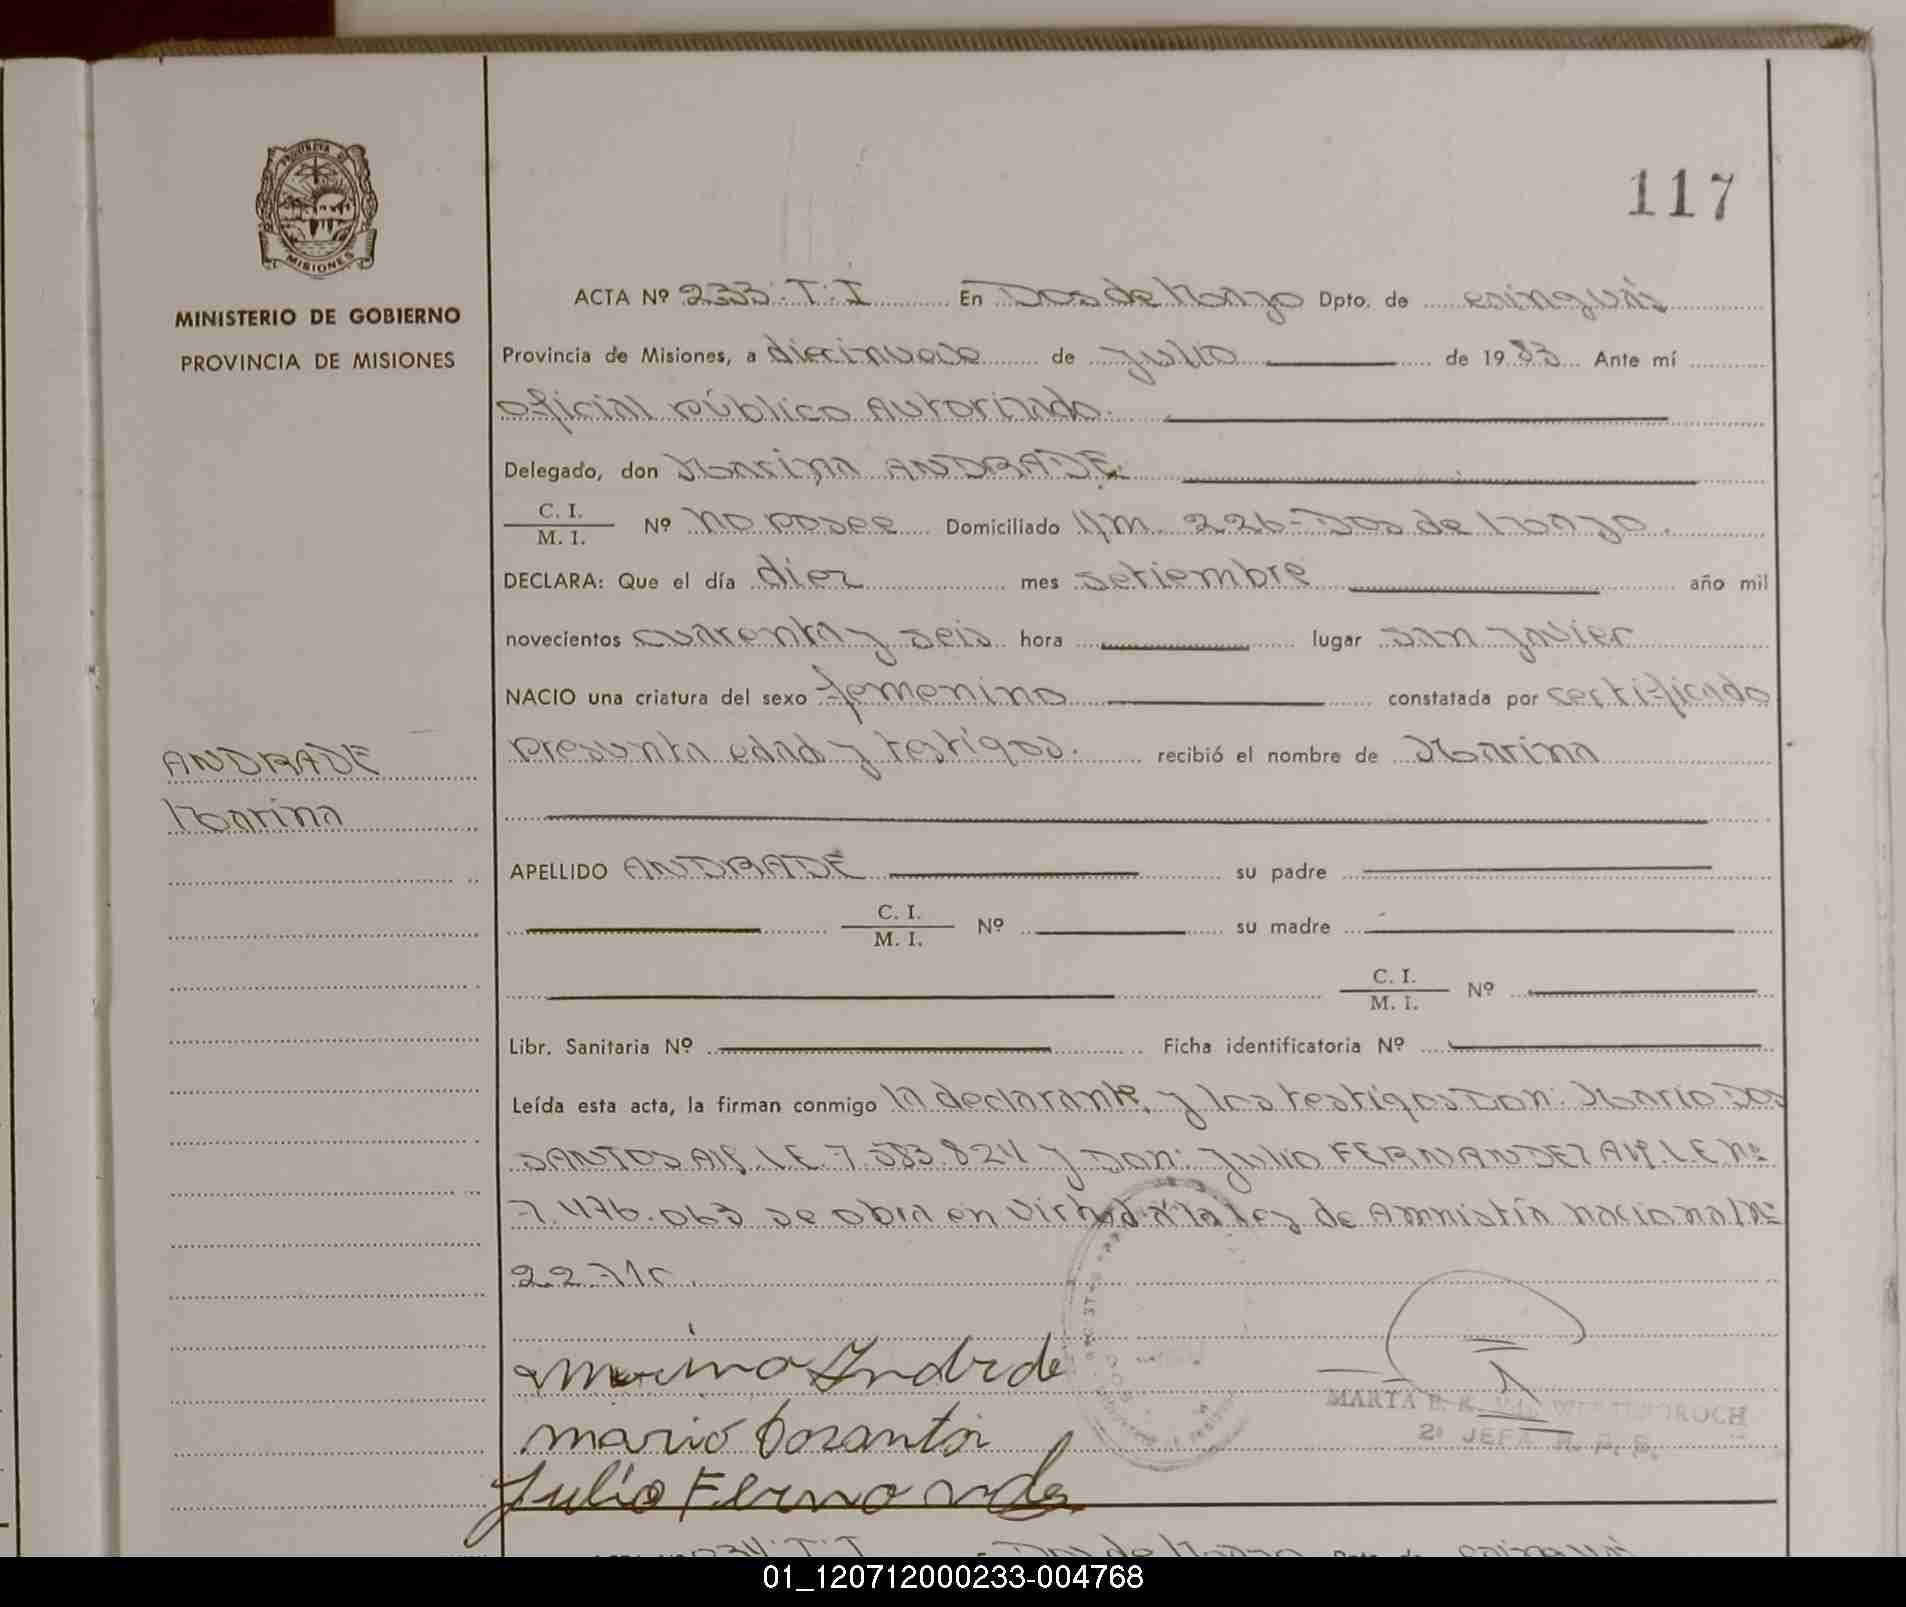 117
PROVINCIA DE
MISIONES
MINISTERIO DE GOBIERNO
PROVINCIA DE MISIONES
ACTA Nº 233. T. I En Dos de Marzo Dpto. de cainguás
Provincia de Misiones, a diecinueve de julio de 1983 Ante mí
oficial público Autorizado.
Delegado, don Marina ANDRADE.
C. I.
M. I. Nº no posee Domiciliado Km. 226-Dos de Marzo.
DECLARA: Que el día diez mes setiembre año mil
novecientos cuarenta y seis hora lugar san javier
NACIO una criatura del sexo femenino constatada por certificado
presunta edad y testigos. recibió el nombre de Marina
ANDRADE
Marina
APELLIDO ANDRADE su padre
C. I.
M. I. Nº su madre
C. I.
M. I. Nº
Libr. Sanitaria Nº Ficha identificatoria Nº
Leída esta acta, la firman conmigo la declarante, y los testigos Don: Mario DOS
SANTOS L.E. 7.583.824 y Don: Julio FERNANDEZ L.E Nº
7.476.063 se obra en virtud a la ley de Amnistía nacional Nº
marina Andrde
mario dosantos
Julio Fernandez
MARTA
2ª JEFA
Dos de Marzo Dpto. de cainguás
01_120712000233-004768